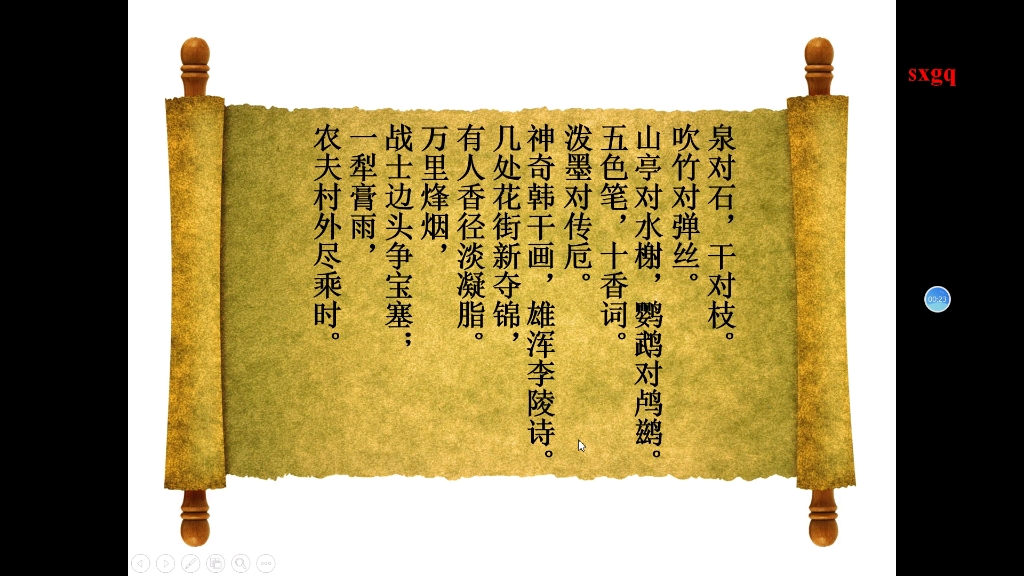 泉对石，干对枝。
吹竹对弹丝。
山亭对水榭，鹦鹉对鸬鹚。
五色笔，十香词。
泼墨对传卮。
神奇韩干画，雄浑李陵诗。
几处花街新夺锦，
有人香径淡凝脂。
万里烽烟，
战士边头争宝塞；
一犁膏雨，
农夫村外尽乘时。
sxgq
00:23